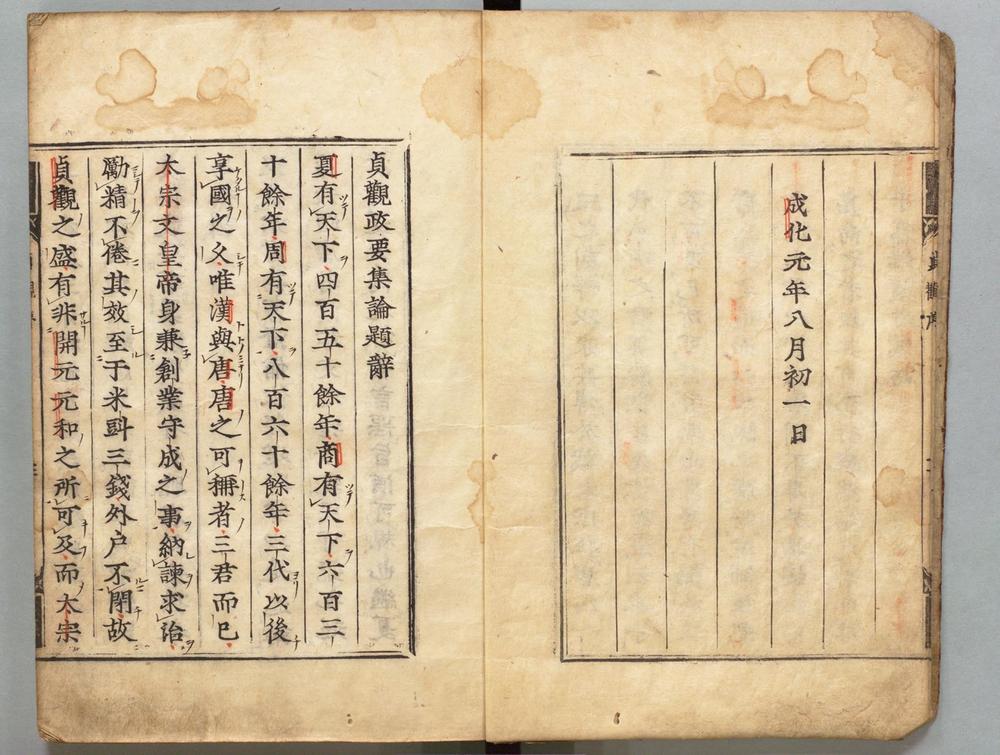 成化元年八月初一日
貞觀政要集論題辭
夏有天下四百五十餘年商有天下六百三
十餘年周有天下八百六十餘年三代以後
享國之久唯漢與唐唐之可稱者三君而已
太宗文皇帝身兼創業守成之事納諫求治
勵精不倦其效至于米㪷三錢外户不閉故
貞觀之盛有非開元元和之所可及而太宗